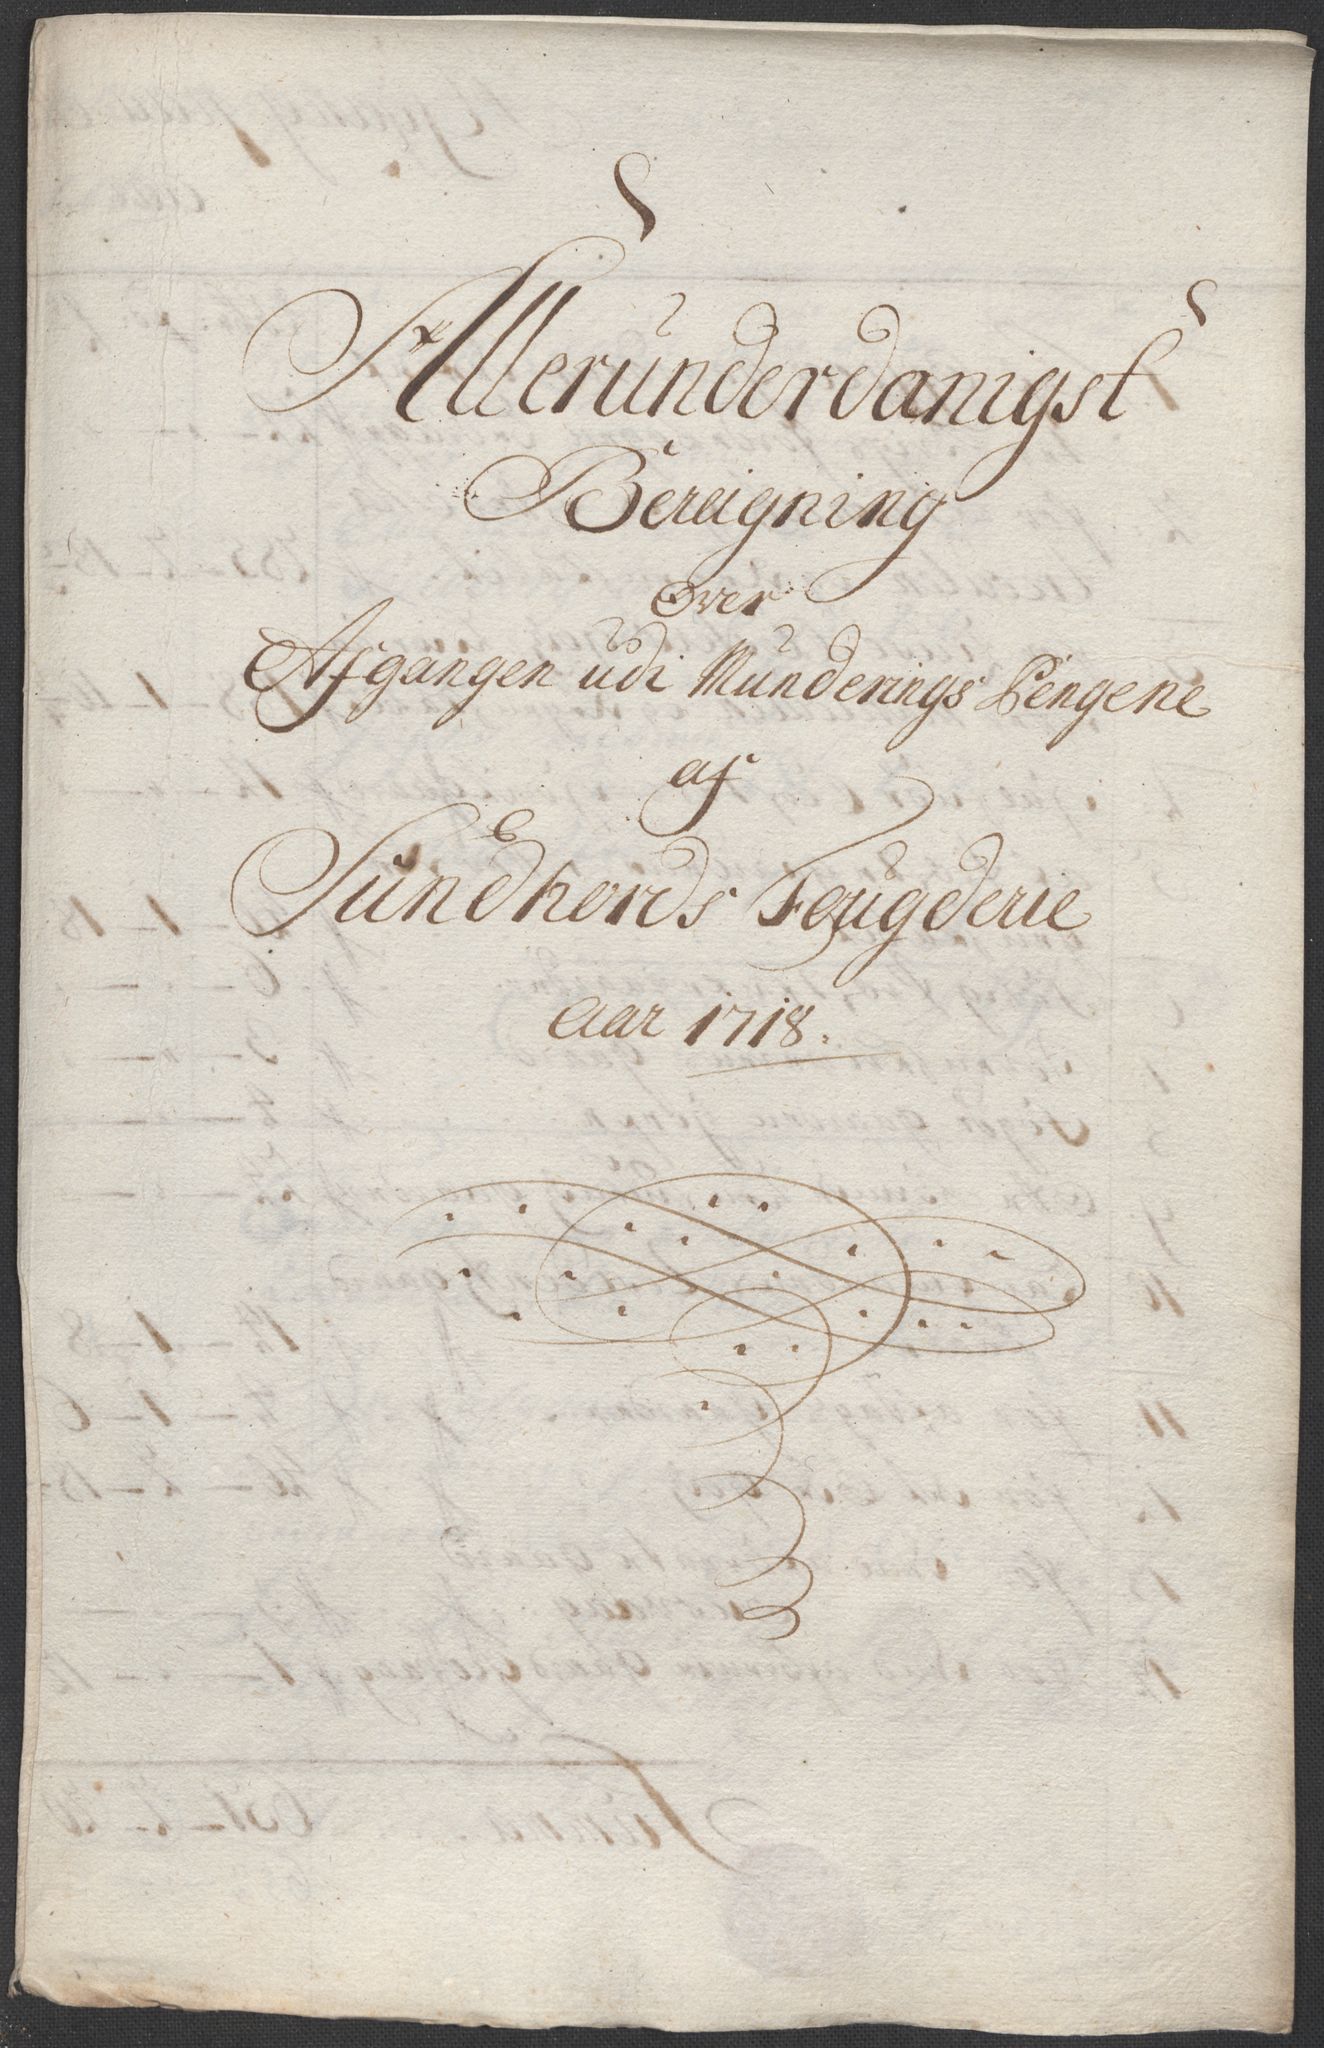 Allerunderdanigst
Bereigning
Over
Afgangen udi Munderings Pengene
af
Sundhords Fougderie
Aar 1718.